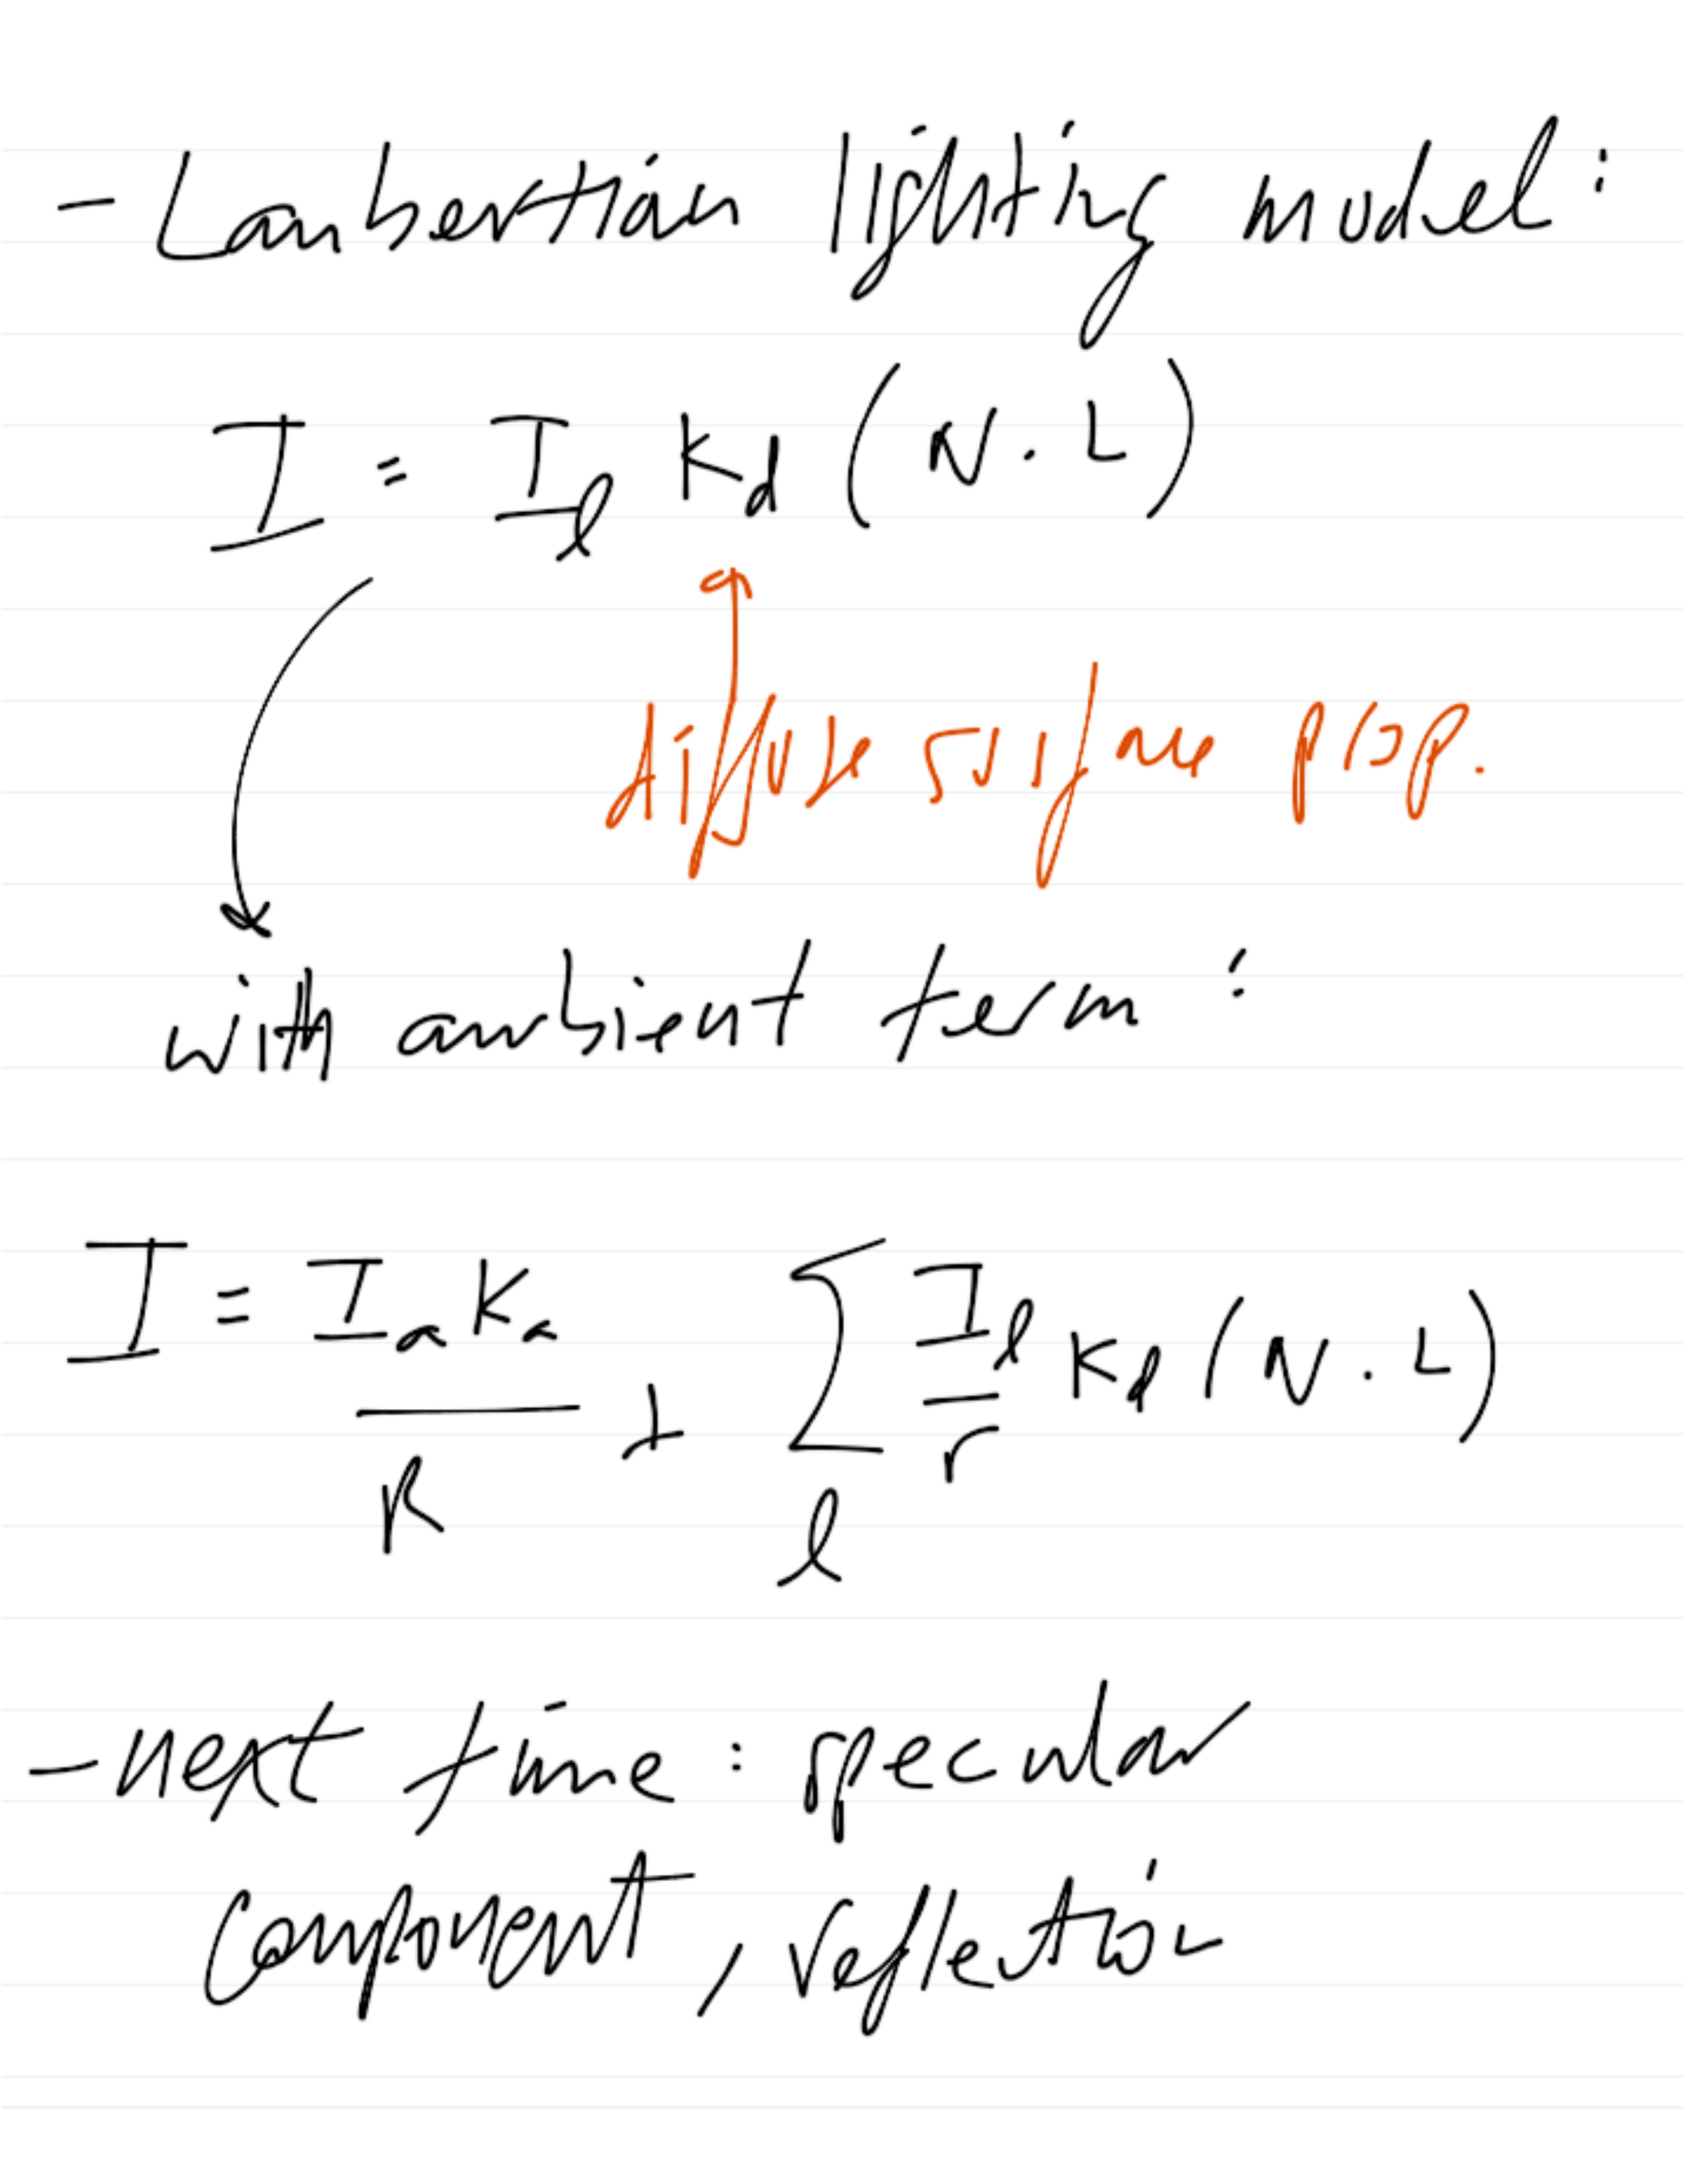 - Lambertian lighting model:
I = I_l k_d (N · L)
diffuse surface prop.
with ambient term:
I = I_a k_a / R + Σ_l I_l / r k_d (N · L)
- next time: specular
component, reflection